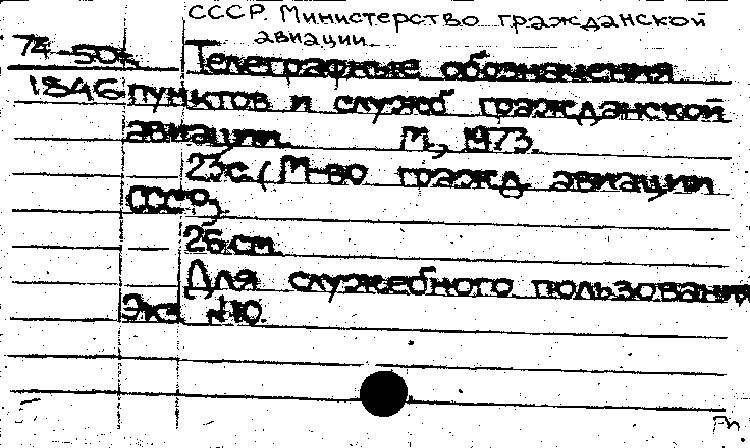 СССР. Министерство гражданской
авиации.
74-50г Телеграфные обозначения
1846 пунктов и служб гражданской
авиации. М., 1973.
23с. (М-во гражд. авиации
СССР)
26 см.
Для служебного пользования
Экз. №10.